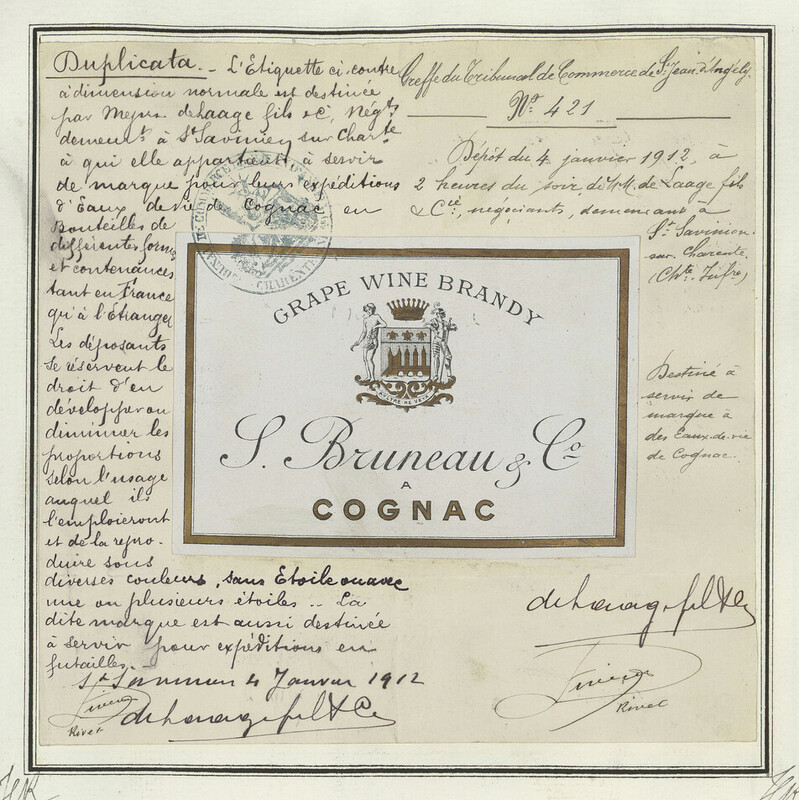 Duplicata. - L'Etiquette ci-contre
à dimension normale est destinée
par Messrs de Laage fils & Cie, Négts
demeurt à St Savinien sur Charte
à qui elle appartient à servir
de marque pour leurs expéditions
d'Eaux de vie de Cognac en
Bouteilles de
différentes formes
et contenances
tant en France
qu'à l'Étranger
Les déposants
se réservent le
droit d'en
développer ou
diminuer les
proportions
selon l'usage
auquel ils
l'emploieront
et de la repro-
duire sous
diverses couleurs, sans Etoile ou avec
une ou plusieurs étoiles. - La
dite marque est aussi destinée
à servir pour expéditions en
futailles. -
St Savinien 4 Janvier 1912
de Laage fils & Cie
Rivet
Greffe du Tribunal de Commerce de St Jean d'Angély
No 421
Dépôt du 4 janvier 1912, à
2 heures du soir, de M.M. de Laage fils
& Cie, négociants, demeurant à
St Savinien-
sur-Charente
(Chte Infre)
GRAPE WINE BRANDY
S. Bruneau & Co
A
COGNAC
Destiné à
servir de
marque à
des Eaux-de-vie
de Cognac.
de Laage fils & Cie
Rivet